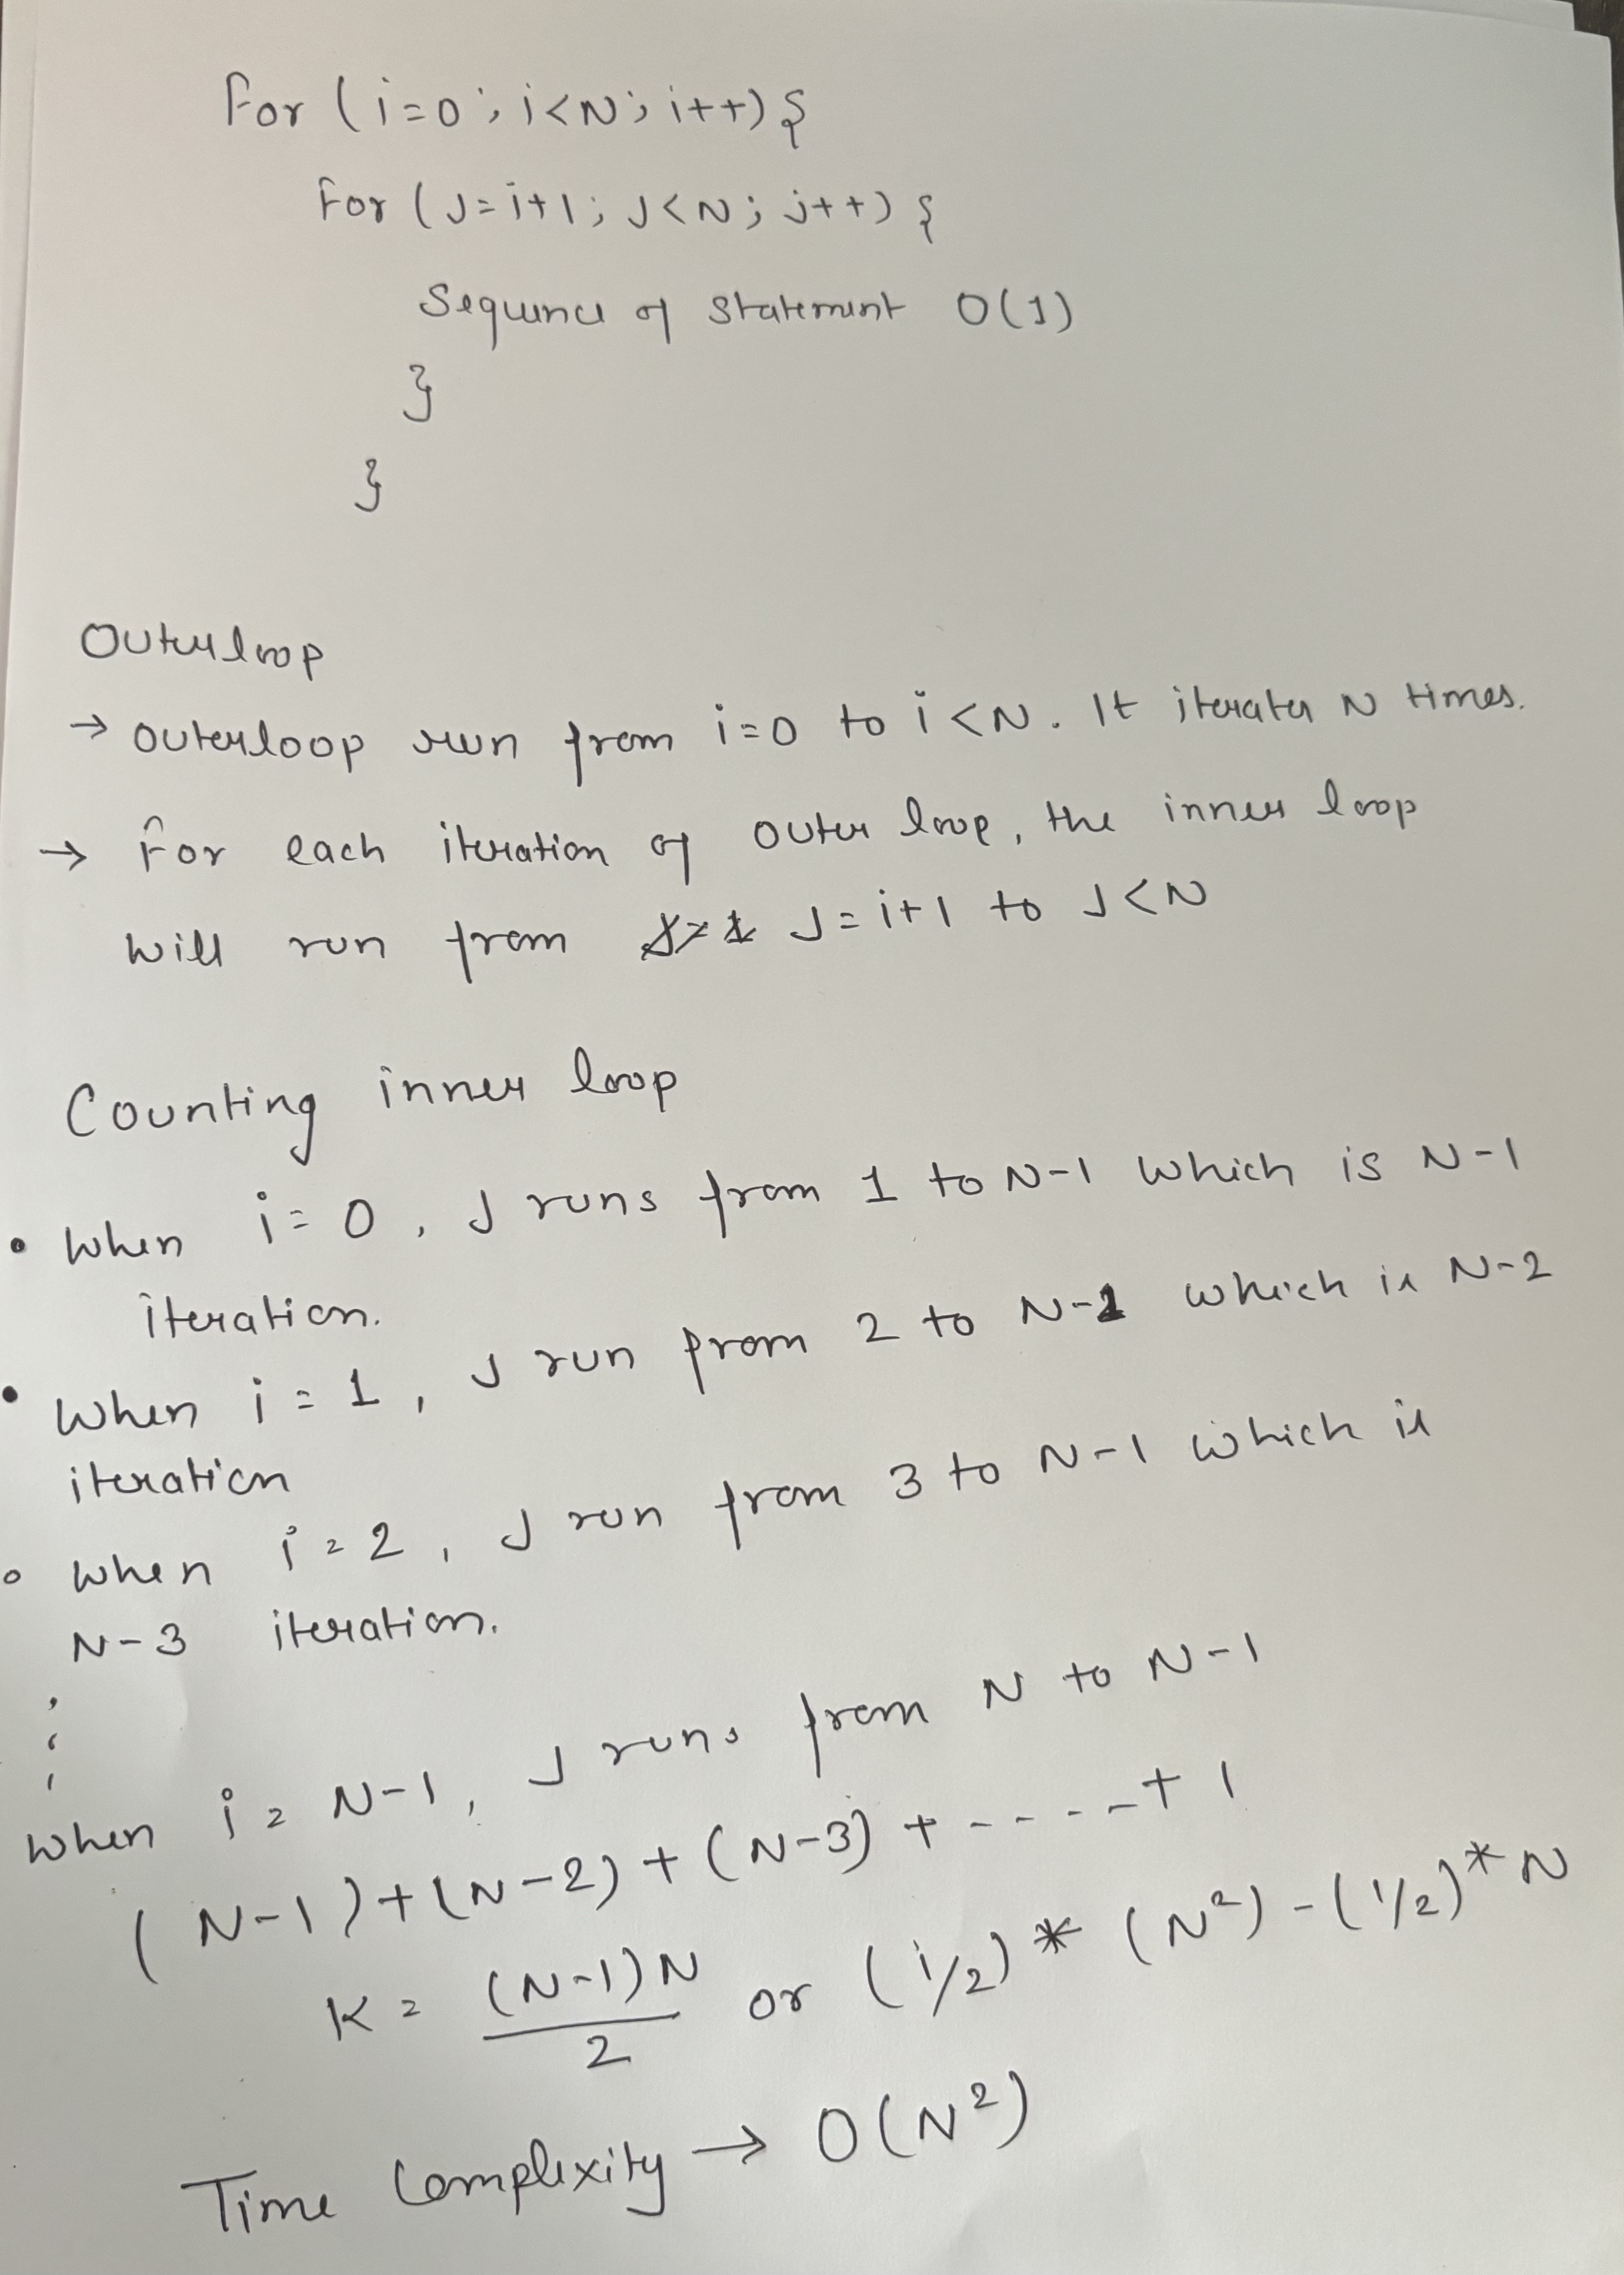 For (i=0; i<N; i++) {
For (J=i+1; J<N; j++) {
Sequence of Statement O(1)
}
}
Outerloop
→ Outerloop run from i=0 to i<N. It iterates N times.
→ For each iteration of outer loop, the inner loop
will run from J=i+1 to J<N
Counting inner loop
• When i=0, J runs from 1 to N-1 which is N-1
iteration.
• When i=1, J run from 2 to N-1 which is N-2
iteration
• When i=2, J run from 3 to N-1 which is
N-3 iteration.
⋮
When i=N-1, J runs from N to N-1
(N-1)+(N-2)+(N-3)+-----+1
K = (N-1)N/2 or (1/2)*(N²)-(1/2)*N
Time Complexity → O(N²)